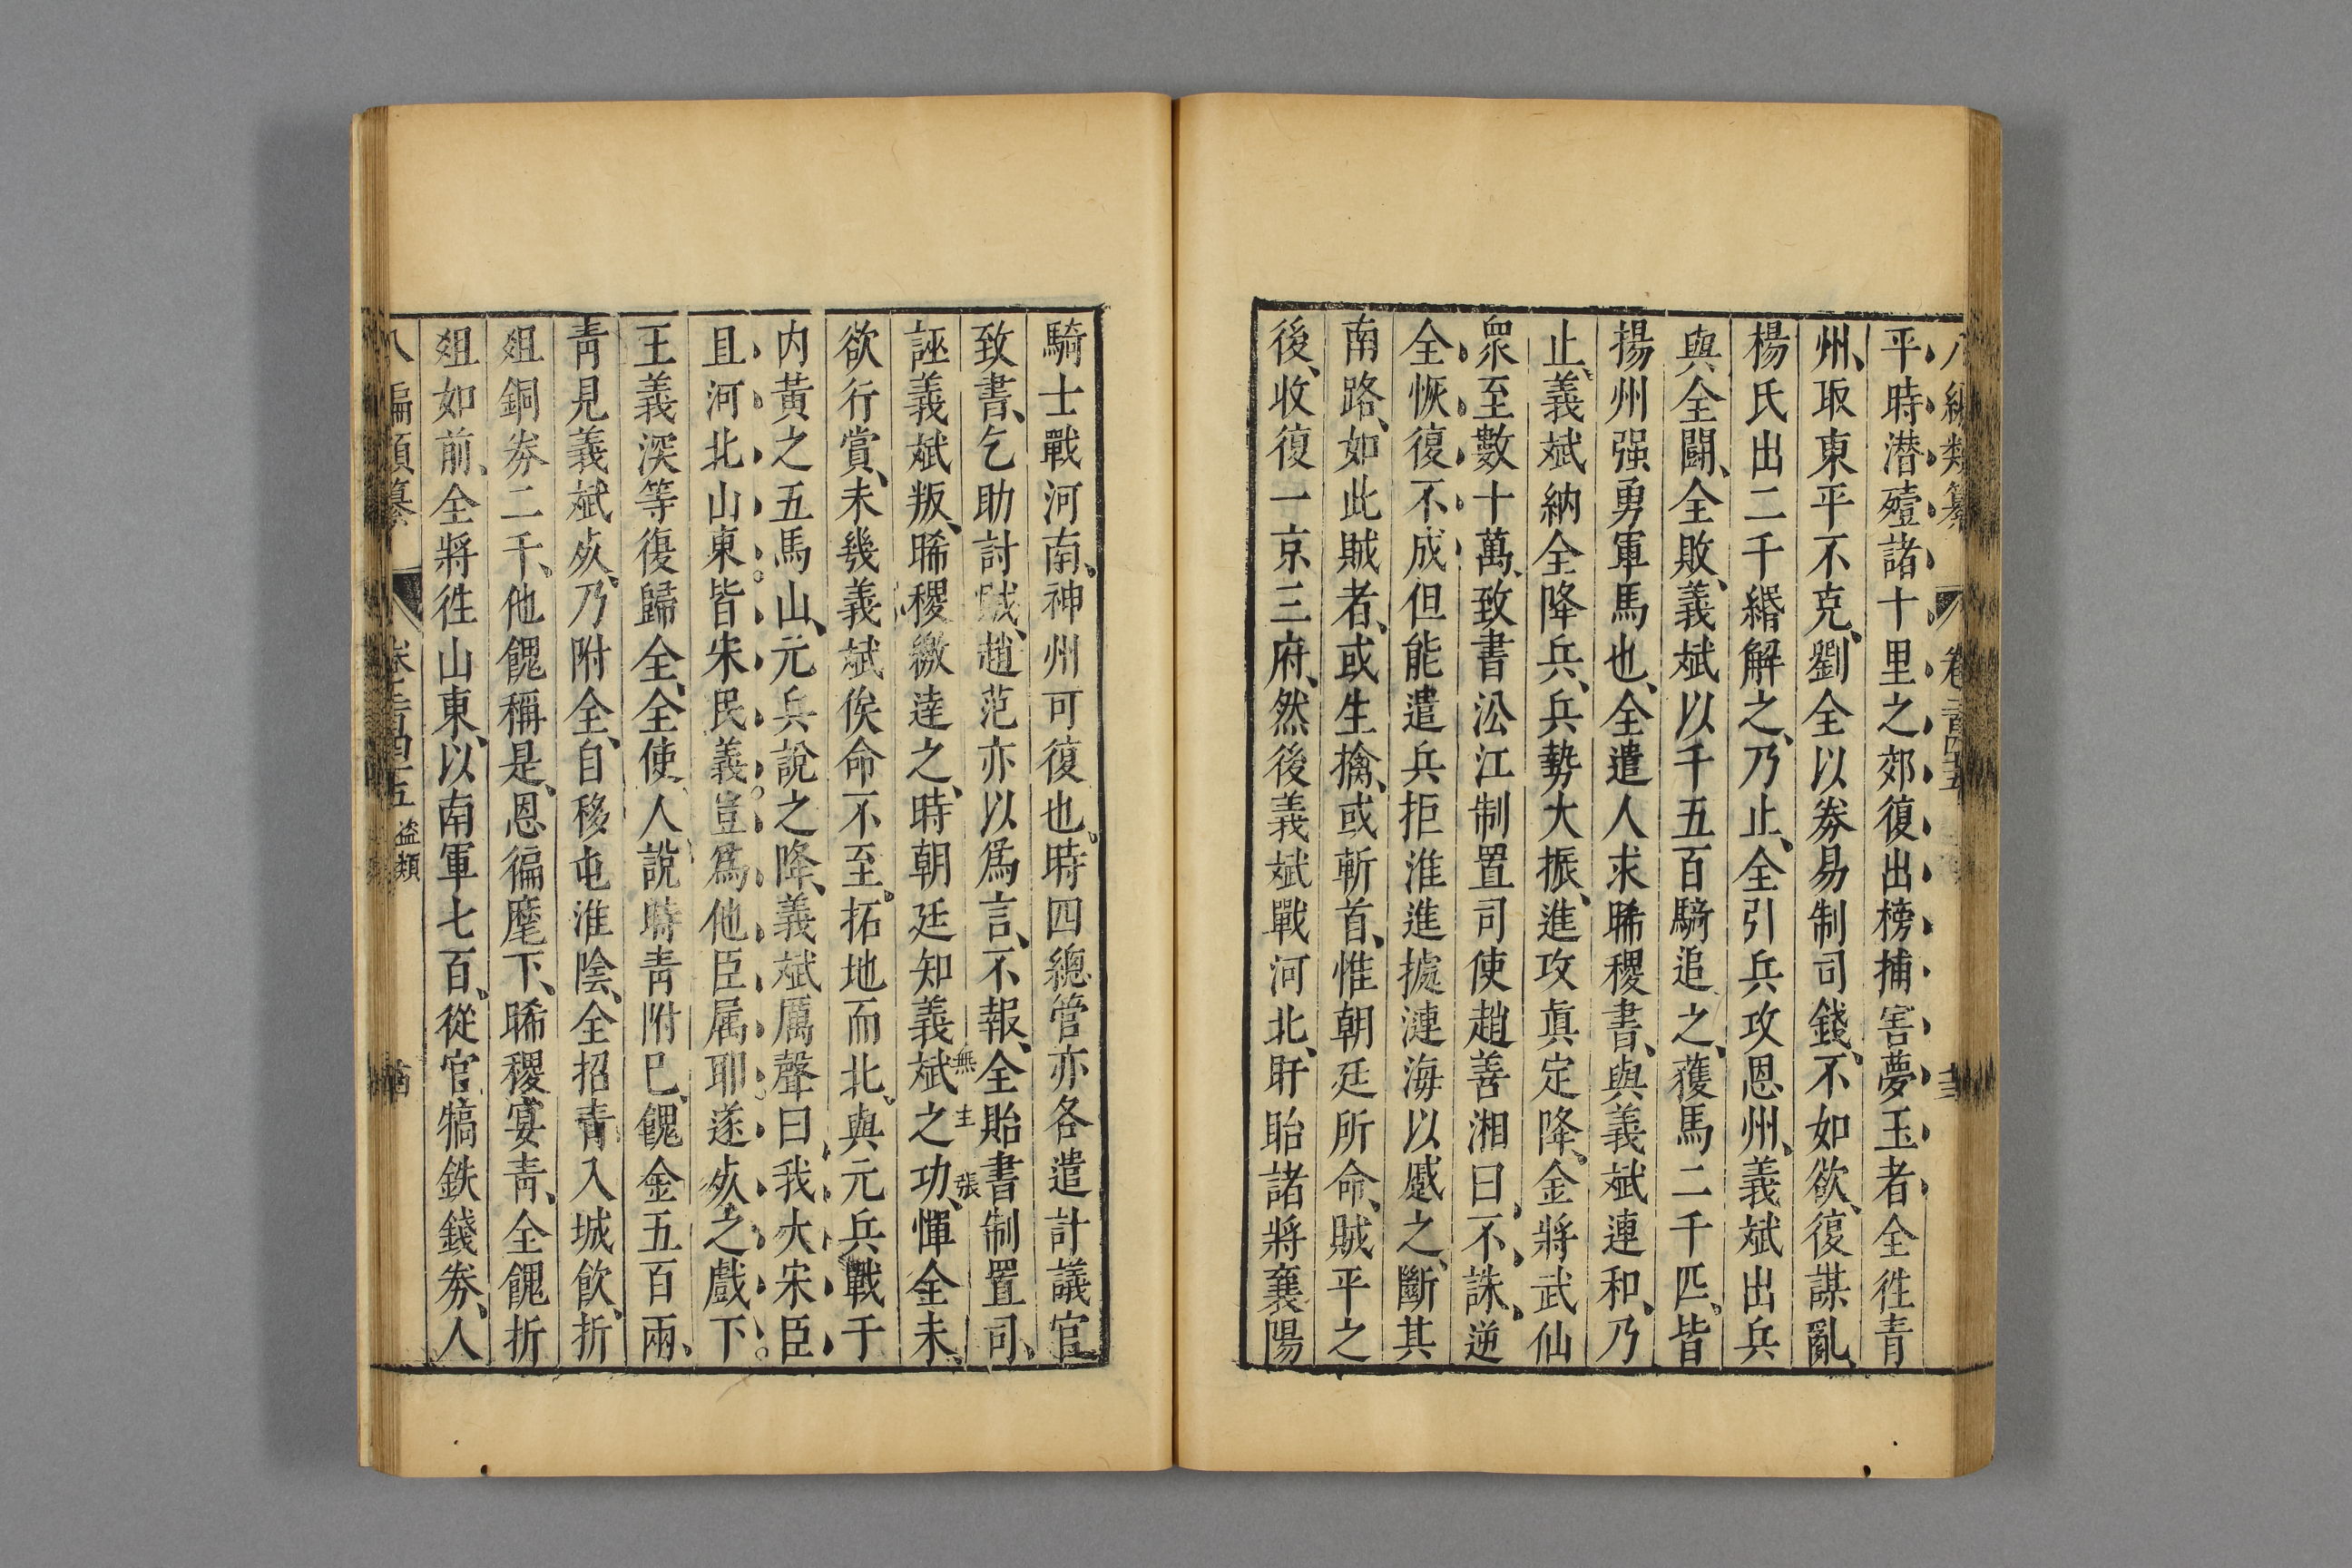 八編類纂 卷二百四十五
平時潜殪諸十里之郊復出榜捕害夢玉者全徃青
州、取東平不克、劉全以劵易制司錢、不如欲、復謀亂、
楊氏出二千緡解之、乃止、全引兵攻恩州、義斌出兵
與全鬪、全敗、義斌以千五百騎追之、獲馬二千匹、皆
揚州强勇軍馬也、全遣人求晞稷書、與義斌連和、乃
止、義斌納全降兵、兵勢大振、進攻真定降、金將武仙
衆至數十萬、致書㳂江制置司使趙善湘曰、不誅、逆
全恢復不成但能遣兵拒淮進據漣海以蹙之、斷其
南路、如此賊者、或生擒、或斬首、惟朝廷所命、賊平之
後、收復一京三府、然後義斌戰河北、盱眙諸將襄陽
騎士戰河南、神州可復也、時四總管亦各遣計議官
致書、乞助討賊、趙范亦以爲言、不報、全貽書制置司、
誣義斌叛、晞稷繳逹之、時朝廷知義斌之功、憚全未、
無主張
欲行賞、未幾義斌俟命不至、拓地而北、與元兵戰于
内黃之五馬山、元兵說之降、義斌厲聲曰、我大宋臣
且河北山東皆宋民義豈爲他臣属耶遂㱕之戲下
王義深等復歸全、全使人說時青附巳、餽金五百兩、
青見義斌㱕、乃附全、自移屯淮陰、全招青入城飲、折
俎銅劵二千、他餽稱是、恩徧麾下、晞稷宴青、全餽折
俎如前、全將徃山東、以南軍七百、從官犒鉄錢劵、人
八編類纂 卷二百四十五 盜類